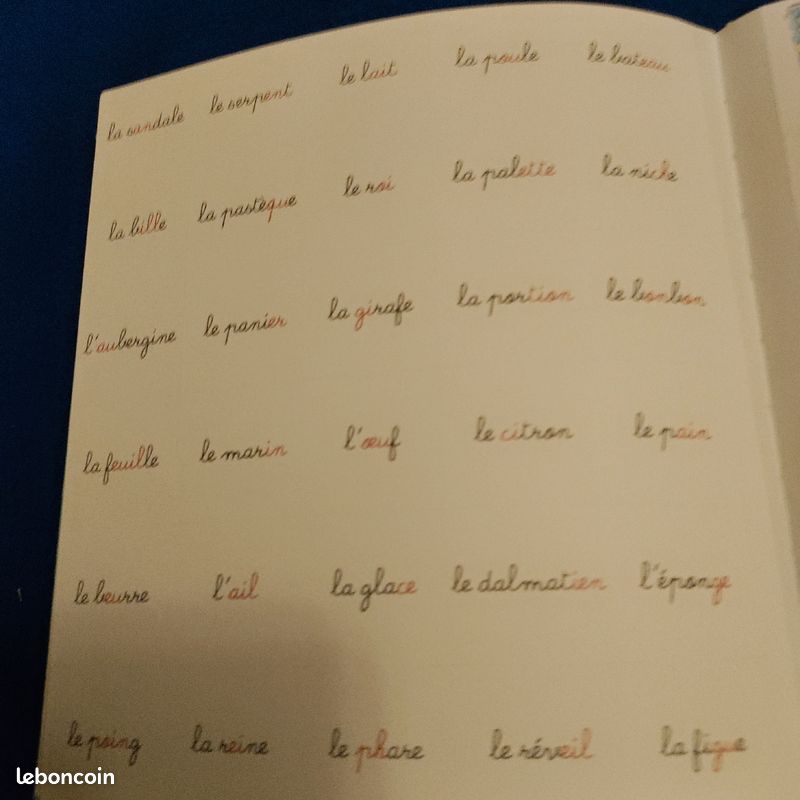 la sandale le serpent le lait la poule le bateau
la bille la pastèque le roi la palette la niche
l'aubergine le panier la girafe la portion le bonbon
la feuille le marin l'œuf le citron le pain
le beurre l'ail la glace le dalmatien l'éponge
le poing la reine le phare le réveil la figue
leboncoin